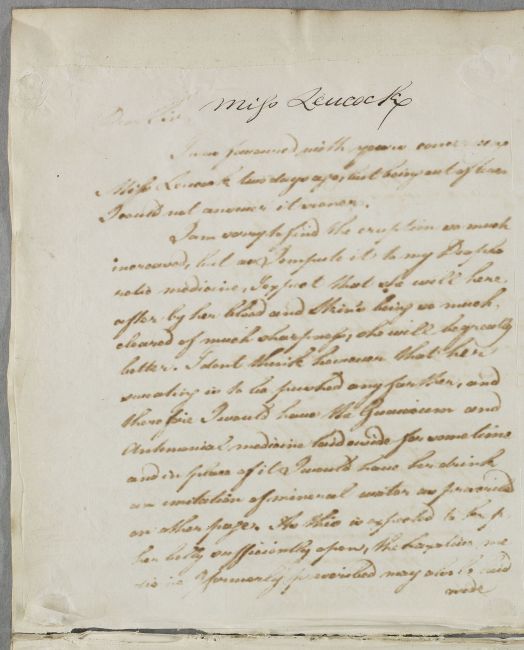 Dear Sir, Miss Leucock
I was favoured with yours concerning
Miss Leucock two days ago, but being out of town
I could not answer it sooner.
I am sorry to find the eruption so much
increased, but as I impute it to my Diapho
retic medicine, I expect that she will here
after by her blood and skin's being so much
cleared of much sharpness, she will be greatly
better. I dont think however that her
sweating is to be pushed any farther, and
therefore I would have the Guaiacum and
Antimonial medicine laid aside for some time
and in place of it I would have her drink
an imitation of mineral water as prescribed
on other page. As this is expected to keep
her belly sufficiently open, the laxative me
formerly prescribed may also be laid